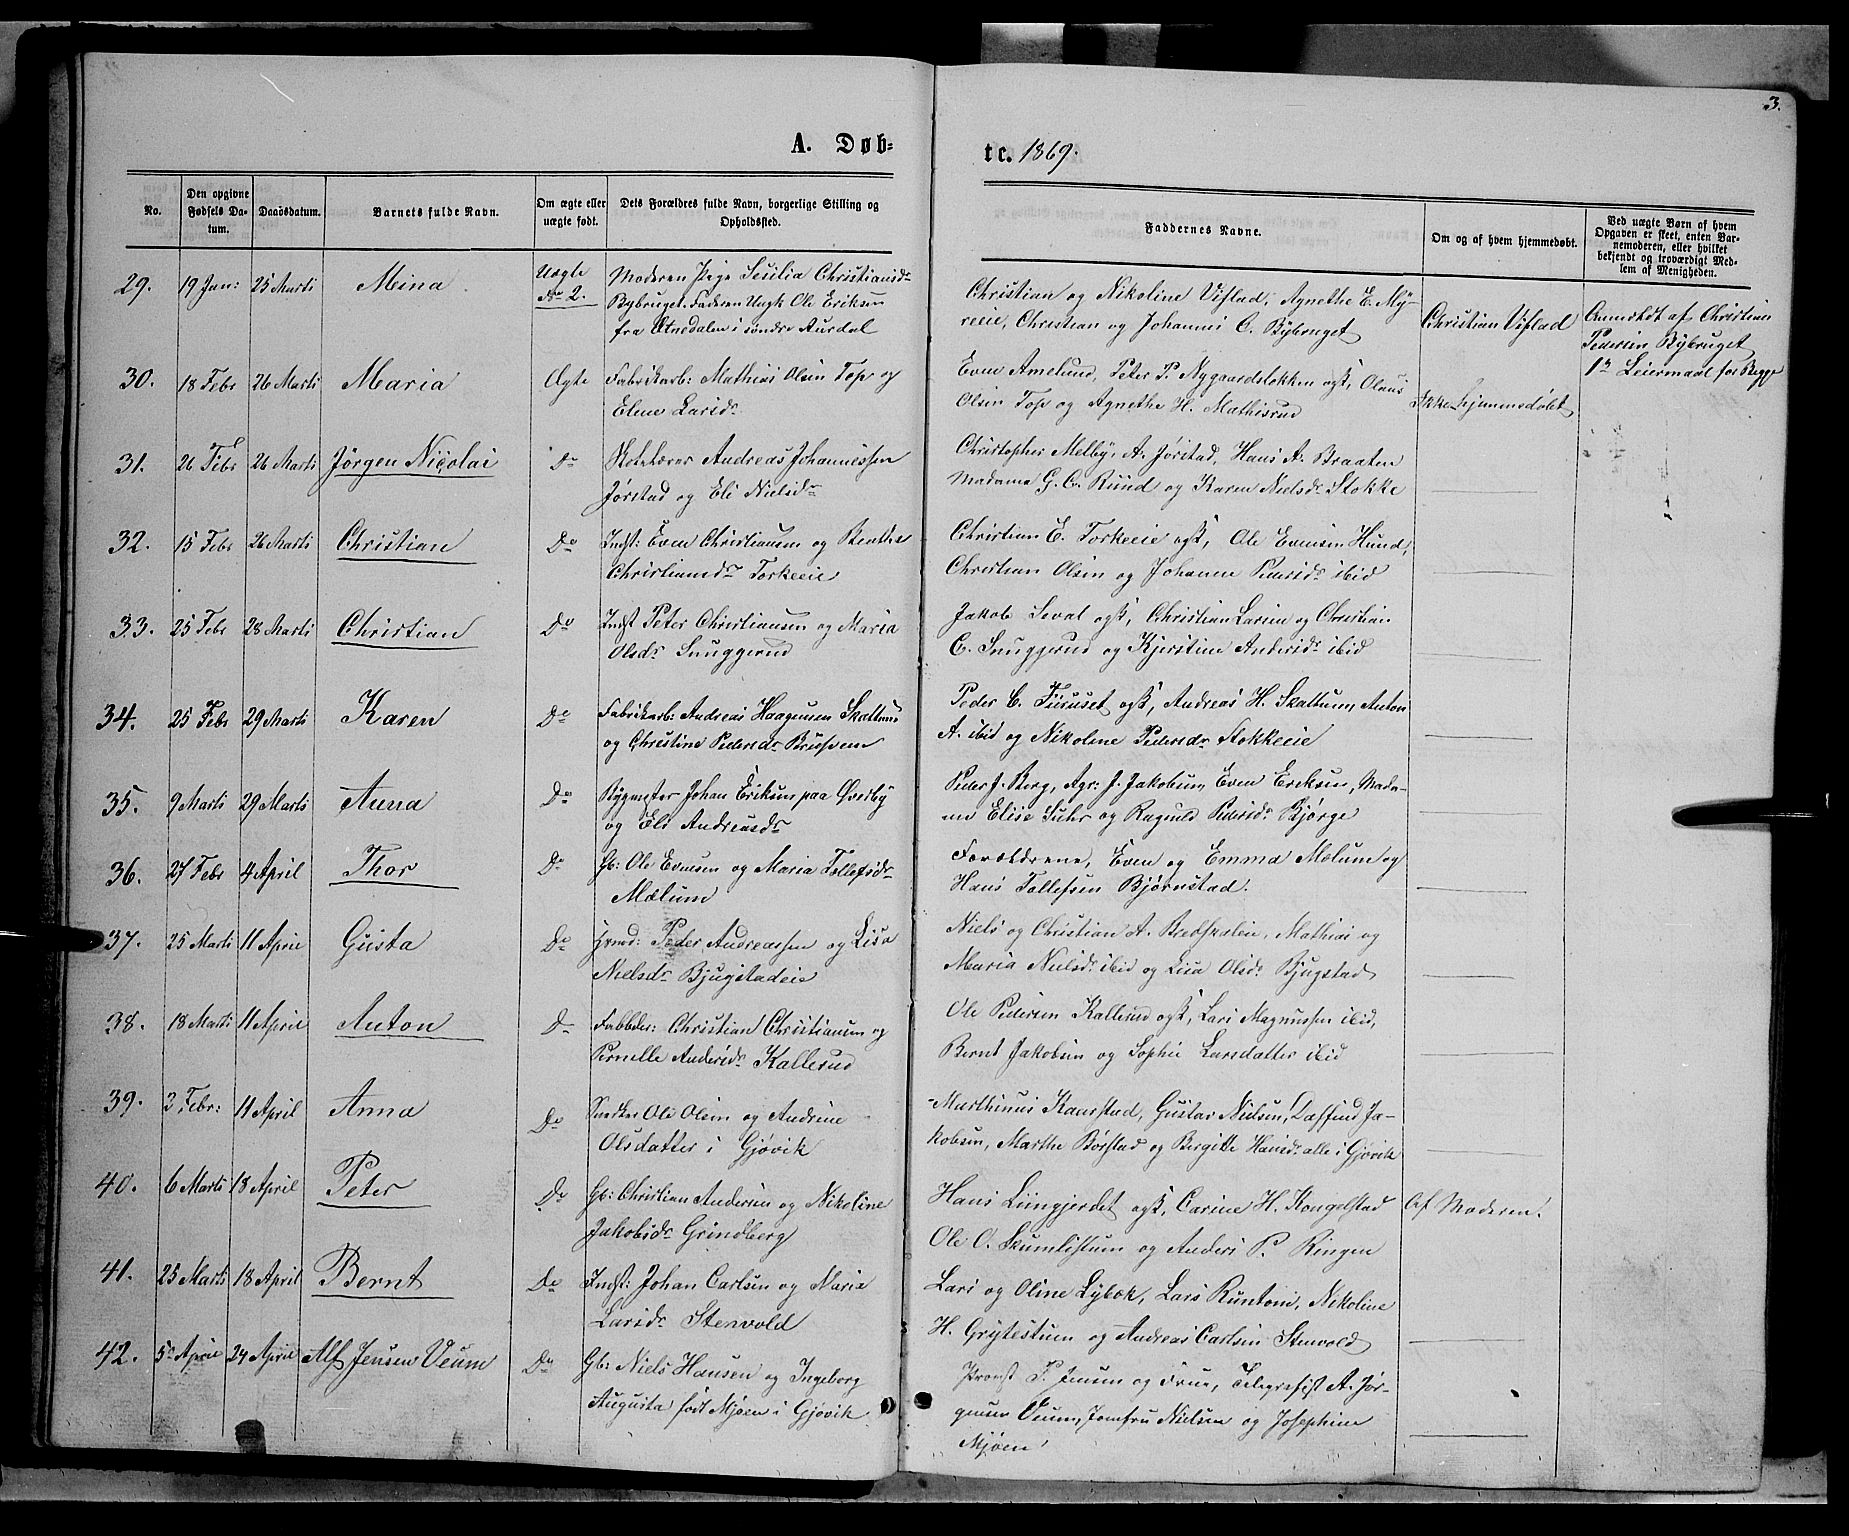 3.
A. Døb=
te. 1869.
No.
Den opgivne Fødsels Da- tum.
Daabsdatum.
Barnets fulde Navn.
Om ægte eller uægte født.
Dets Forældres fulde Navn, borgerlige Stilling og Opholdssted.
Faddernes Navne.
Om og af hvem hjemmedøbt.
Ved uægte Børn af hvem Opgaven er skeet, enten Bar- nemoderen, eller hvilket bekjendt og troværdigt Med- lem af Menigheden.
29. 19 Jan: 25 Marts Meina Uægte No 2. Moderen Pige Sesilia Christiansdr
Bybruget. Faderen Ungk Ole Eriksen
fra Etnedalen i søndre Aurdal
Christian og Nikoline Vifstad, Agnethe E. My-
reeie, Christian og Johannes C. Bybruget
Christian Vifstad
Anmeldt af Christian
Pedersen Bybruget
1ste Leiermaal for Begge
30. 18 Febr 26 Marts Maria Ægte Fabrikarb: Mathias Olsen Top og
Elene Larsdr
Even Amelund, Peter P. Nygaardstokken og k, Olaus
Olsen Top og Agnethe H. Mathisrud
Ikke hjemmedøbt
31. 26 Febr 26 Marts Jørgen Nicolai Do Skolelærer Andreas Johannessen
Jørstad og Eli Nielsdr
Christopher Melby, A. Jørstad, Hans A. Braaten
Madame G. C. Rund og Karen Nielsdr Stokke
32. 15 Febr 26 Marts Christian Do Indst: Even Christiansen og Berthe
Christiansdr Torkeeie
Christian E. Torkeeie og k, Ole Evensen Hund,
Christian Olsen og Johanne Pedersdr ibid
33. 25 Febr 28 Marts Christian Do Indst Peter Christiansen og Maria
Olsdr Snuggerud
Jakob Seval og k, Christian Larsen og Christian
C. Snuggerud og Kjerstine Andersdr ibid
34. 25 Febr 29 Marts Karen Do Fabrikarb: Andreas Haagensen Skattum
og Christine Pedersdr
Peder C. Furuset og k, Andreas H. Skattum, Anton
A. ibid og Nikoline Pedersdr Stokkeeie
35. 9 Marts 29 Marts Anna Do Bygmester Johan Eriksen paa Øverby
og Eli Andreasdr
Peder J. Borg, Agr: J. Jakobsen, Even Eriksen, Mada-
me Elise Suhr og Ragnild Pedersdr Bjørge
36. 27 Febr 4 April Thor Do Gb: Ole Evensen og Maria Tollefsdr
Mælum
Forældrene, Even og Emma Mælum og
Hans Tollefsen Bjørnstad.
37. 25 Marts 11 April Gusta Do Grmd: Peder Andreassen og Lisa
Nielsdr Bjugstadeie
Niels og Christian A. Bredskaleie, Mathias og
Maria Nielsdr ibid og Lisa Olsdr Bjugstad
38. 18 Marts 11 April Anton Do Christian Christiansen og
Pernille Andersdr Kallerud
Ole Pedersen Kallerud og k, Lars Magnussen ibid,
Bernt Jakobsen og Sophie Larsdatter ibid
39. 3 Febr: 11 April Anna Do Snedker Ole Olsen og Andrine
Olsdatter i Gjøvik
Marthinus Kaarstad, Gustav Nielsen, Daffind Ja-
kobsen, Marthe Børstad og Bergitte Hansdr alle i Gjøvik
40. 6 Marts 18 April Peter Do Gb: Christian Andersen og Nikoline
Jakobsdr Grindberg
Hans Liungjerdet og k, Carine H. Kongelstad
Ole O. Skumlistum og Anders P. Ringen
Af Moderen.
41. 25 Marts 18 April Bernt Do Indst: Johan Carlsen og Maria
Larsdr Stenvold
Lars og Oline Lybæk, Lars Runtom, Nikoline
H. Grytestum og Andreas Carlsen Stenvold
42. 5 April 24 April Alf Jensen Veum Do Gb: Niels Hansen og Ingeborg
Augusta født Mjøen i Gjøvik
Provst P. Jensen og Frue, Telegrafist A. Jør-
gensen Veum, Jomfru Nielsen og Josephine
Mjøen